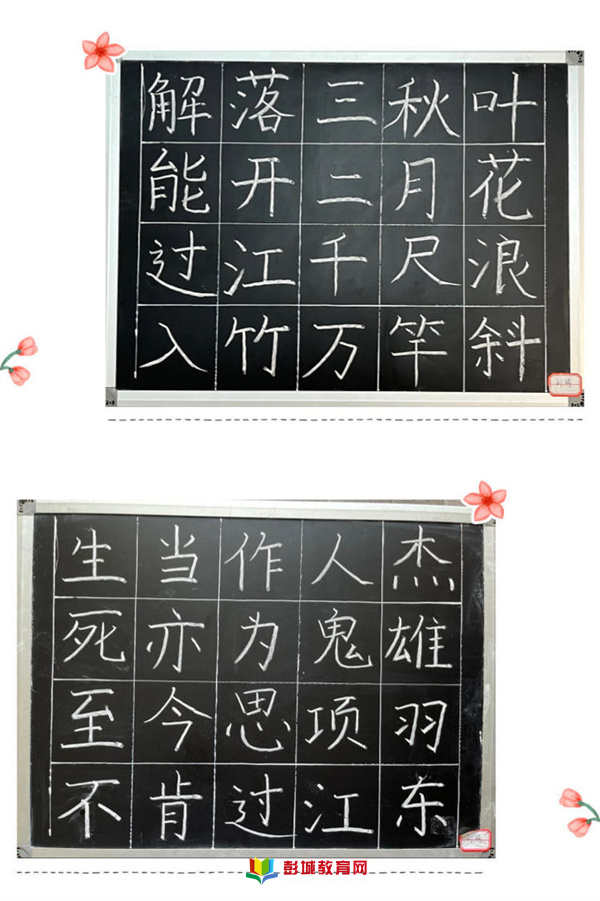 解落三秋叶
能开二月花
过江千尺浪
入竹万竿斜
生当作人杰
死亦为鬼雄
至今思项羽
不肯过江东
彭城教育网